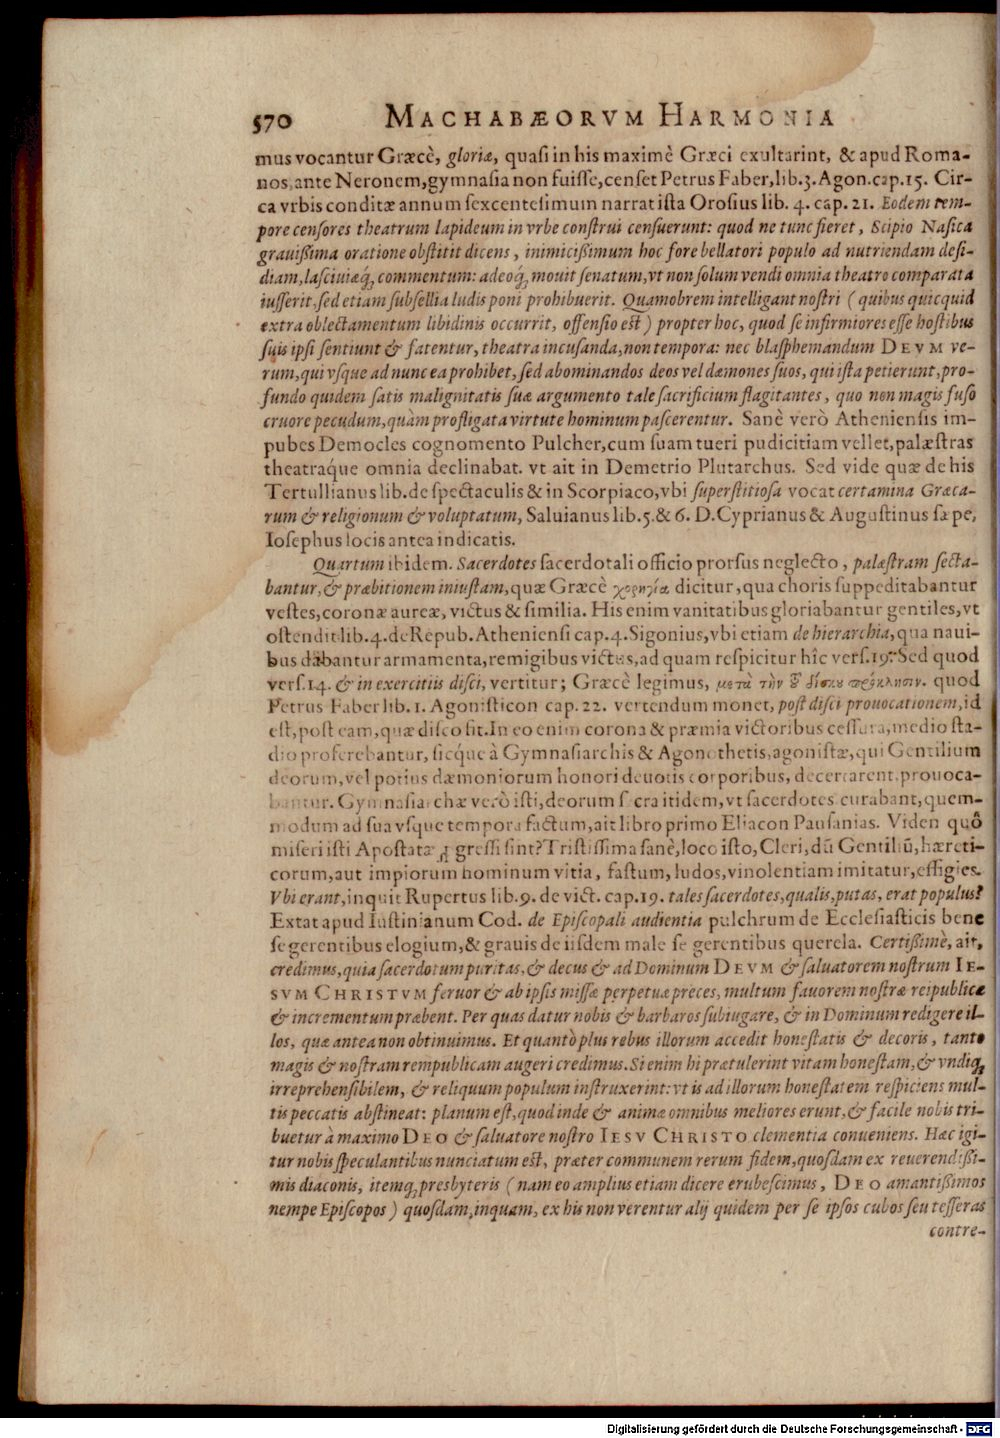 570 MACHABÆORVM HARMONIA
mus vocantur Græcè, gloriæ, quaſi in his maximè Græci exultarint, & apud Roma-
nos, ante Neronem, gymnaſia non fuiſſe, cenſet Petrus Faber, lib. 3. Agon. cap. 15. Cir-
ca vrbis conditæ annum ſexcenteſimum narrat iſta Oroſius lib. 4. cap. 21. Eodem tem-
pore cenſores theatrum lapideum in vrbe conſtrui cenſuerunt: quod ne tunc fieret, Scipio Naſica
grauiſſima oratione obſtitit dicens, inimiciſſimum hoc fore bellatori populo ad nutriendam deſi-
diam, laſciuiæq́; commentum: adeoq́; mouit ſenatum, vt non ſolum vendi omnia theatro comparata
iuſſerit, ſed etiam ſubſellia ludis poni prohibuerit. Quamobrem intelligant noſtri (quibus quicquid
extra oblectamentum libidinis occurrit, offenſio eſt) propter hoc, quod ſe infirmiores eſſe hoſtibus
ſuis ipſi ſentiunt & fatentur, theatra incuſanda, non tempora: nec blaſphemandum DEVM ve-
rum, qui vſque ad nunc ea prohibet, ſed abominandos deos vel dæmones ſuos, qui iſta petierunt, pro-
fundo quidem ſatis malignitatis ſuæ argumento tale ſacrificium flagitantes, quo non magis fuſo
cruore pecudum, quàm profligata virtute hominum paſcerentur. Sanè verò Athenienſis im-
pubes Democles cognomento Pulcher, cum ſuam tueri pudicitiam vellet, palæſtras
theatraq́ue omnia declinabat. vt ait in Demetrio Plutarchus. Sed vide quæ de his
Tertullianus lib. de ſpectaculis & in Scorpiaco, vbi ſuperſtitioſa vocat certamina Græca-
rum & religionum & voluptatum, Saluianus lib. 5. & 6. D. Cyprianus & Auguſtinus ſæpe,
Ioſephus locis antea indicatis.
Quartum ibidem. Sacerdotes ſacerdotali officio prorſus neglecto, palæſtram ſecta-
bantur, & præbitionem iniuſtam, quæ Græcè χορηγία dicitur, qua choris ſuppeditabantur
veſtes, coronæ aureæ, victus & ſimilia. His enim vanitatibus gloriabantur gentiles, vt
oſtendit lib. 4. de Repub. Athenienſi cap. 4. Sigonius, vbi etiam de hierarchia, qua naui-
bus dabantur armamenta, remigibus victus, ad quam reſpicitur hîc verſ. 19. Sed quod
verſ. 14. & in exercitiis diſci, vertitur; Græcè legimus, μετὰ τὴν τοῦ δίσκου πρόκλησιν. quod
Petrus Faber lib. 1. Agoniſticon cap. 22. vertendum monet, poſt diſci prouocationem, id
eſt, poſt eam, quæ diſco fit. In eo enim corona & præmia victoribus ceſſura, medio ſta-
dio proferebantur, ſicq́ue à Gymnaſiarchis & Agonothetis, agoniſtæ, qui Gentilium
deorum, vel potius dæmoniorum honori deuotis corporibus, decertarent, prouoca-
bantur. Gymnaſiarchæ verò iſti, deorum ſacra itidem, vt ſacerdotes curabant, quem-
modum ad ſua vſque tempora factum, ait libro primo Eliacon Pauſanias. Viden quò
miſeri iſti Apoſtatæ ꝓgreſſi ſint? Triſtiſſima ſanè, loco iſto, Cleri, dū Gentiliū, hæreti-
corum, aut impiorum hominum vitia, faſtum, ludos, vinolentiam imitatur, effigies.
Vbi erant, inquit Rupertus lib. 9. de vict. cap. 19. tales ſacerdotes, qualis, putas, erat populus?
Extat apud Iuſtinianum Cod. de Epiſcopali audientia pulchrum de Eccleſiaſticis bene
ſe gerentibus elogium, & grauis de iiſdem male ſe gerentibus querela. Certiſſimè, ait,
credimus, quia ſacerdotum puritas, & decus & ad Dominum DEVM & ſaluatorem noſtrum IE-
SVM CHRISTVM feruor & ab ipſis miſſæ perpetuæ preces, multum fauorem noſtræ reipublicæ
& incrementum præbent. Per quas datur nobis & barbaros ſubiugare, & in Dominum redigere il-
los, quæ antea non obtinuimus. Et quantò plus rebus illorum accedit honeſtatis & decoris, tanto
magis & noſtram rempublicam augeri credimus. Si enim hi prætulerint vitam honeſtam, & vndiq;
irreprehenſibilem, & reliquum populum inſtruxerint: vt is ad illorum honeſtatem reſpiciens mul-
tis peccatis abſtineat: planum eſt, quod inde & animæ omnibus meliores erunt, & facile nobis tri-
buetur à maximo DEO & ſaluatore noſtro IESV CHRISTO clementia conueniens. Hæc igi-
tur nobis ſpeculantibus nunciatum eſt, præter communem rerum fidem, quoſdam ex reuerendiſſi-
mis diaconis, itemq; presbyteris (nam eo amplius etiam dicere erubeſcimus, DEO amantiſſimos
nempe Epiſcopos) quoſdam, inquam, ex his non verentur alij quidem per ſe ipſos cubos ſeu teſſeras
contre-
Digitalisierung gefördert durch die Deutsche Forschungsgemeinschaft - DFG